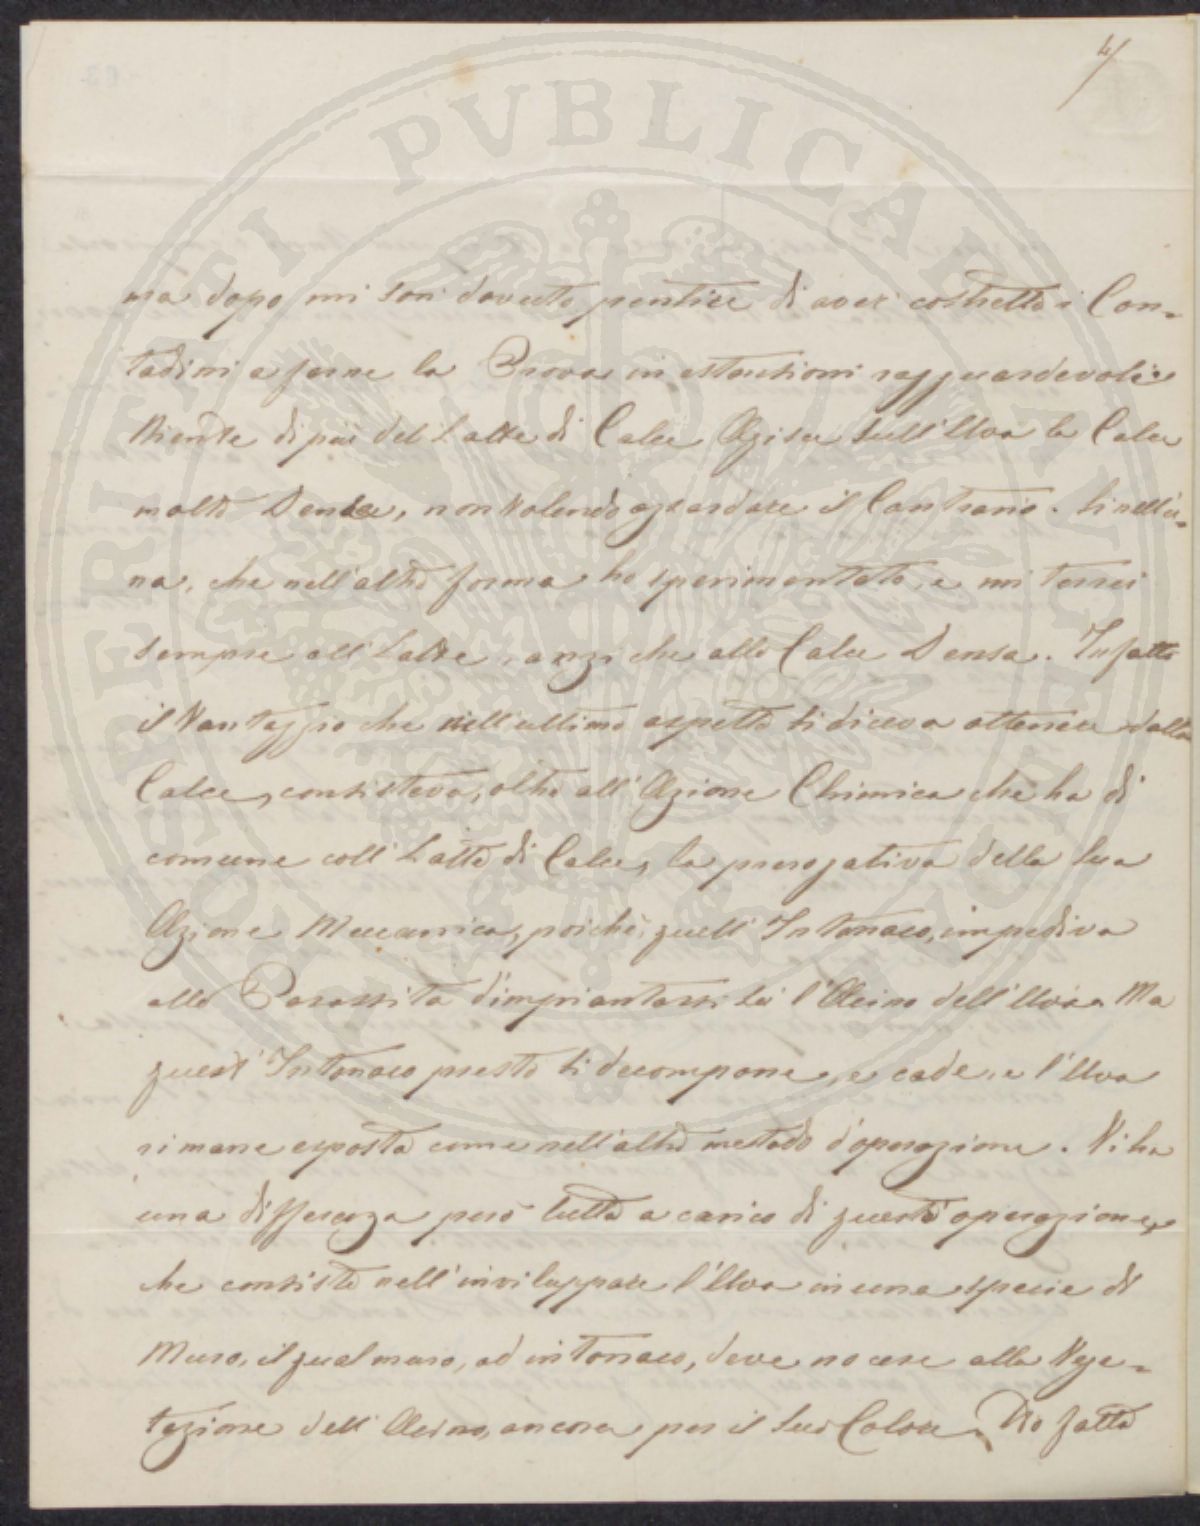 4/
ma dopo mi son dovuto pentire di aver costretto i Con=
tadini a farne la Prova in estenzioni ragguardevoli.
Niente di più del Latte di Calce Agisce sull'Uva la Calce
molto Densa, non volendo azzardare il Contrario. Sì nell'u=
na, che nell'altra forma ho sperimentato, e mi terrei
sempre all'Latte, anzi che alla Calce Densa. Infatti
il Vantaggio che nell'ultimo aspetto si diceva ottenere dalla
Calce, consisteva, oltre all'Azione Chimica che ha di
comune coll'Latte di Calce, la prerogativa della sua
Azione Meccanica, poiché, quell'Intonaco, impediva
alla Parassita d'impiantarsi su l'Acino dell'Uva. Ma
quest'Intonaco presto si decompone, e cade, e l'Uva
rimane esposta come nell'altro metodo d'operazione. Vi ha
una differenza però tutta a carico di questa operazione,
che consiste nell'inviluppare l'Uva in una specie di
Muro, il qual muro, od intonaco, deve nocere alla Vege=
tazione dell'Acino, ancora per il suo Calore. Ho fatto
PVBLICAE
SOSPERITATI